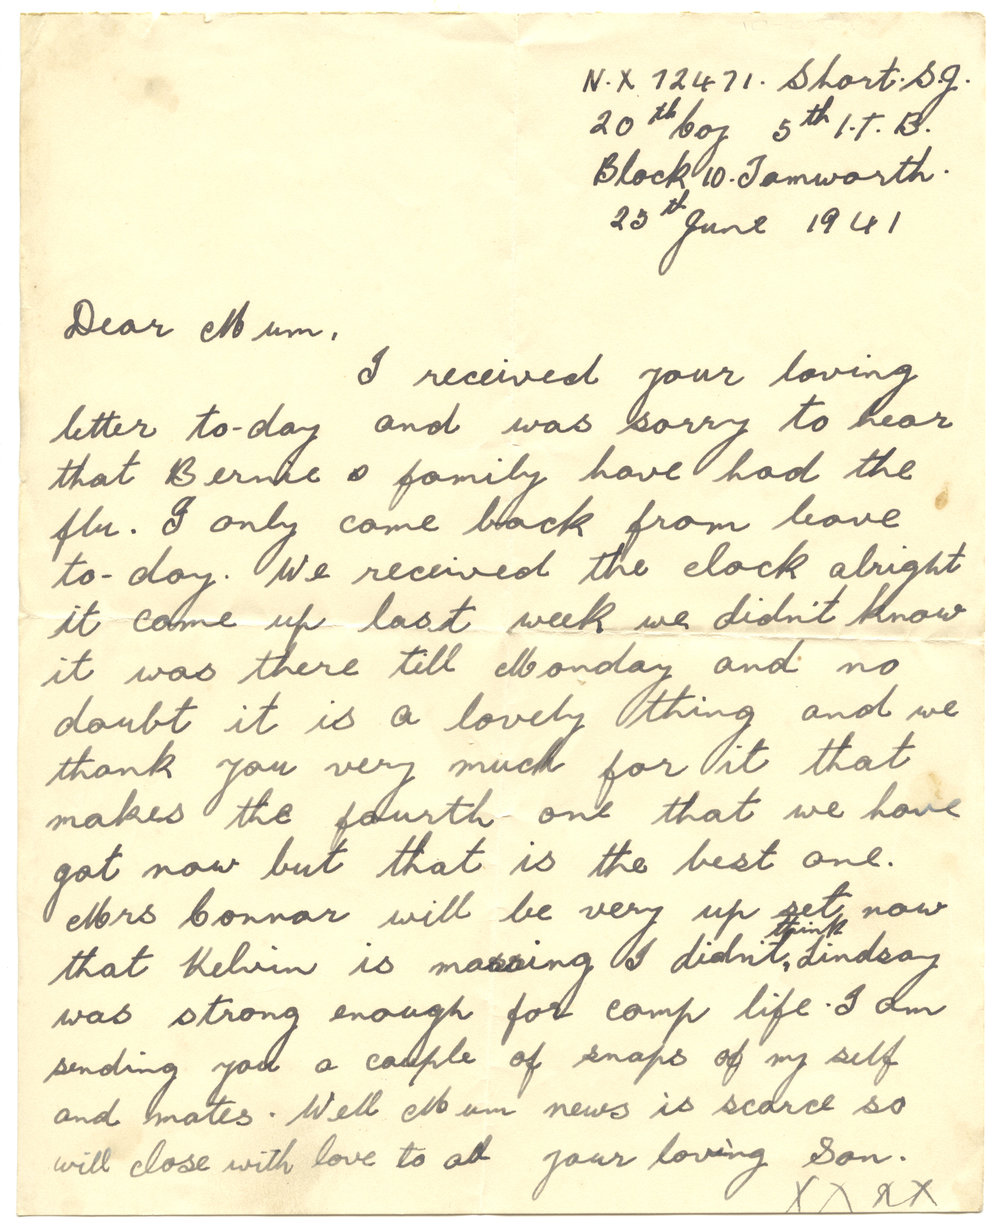 N.X 72471. Short. S.J.
20th Coy 5th I.T.B.
Block 10. Tamworth.
25th June 1941
Dear Mum,
I received your loving
letter to-day and was sorry to hear
that Bernie s family have had the
flu. I only came back from leave
to-day. We received the clock alright
it came up last week we didn't know
it was there till Monday and no
doubt it is a lovely thing and we
thank you very much for it that
makes the fourth one that we have
got now but that is the best one.
Mrs Connor will be very up set now
that Kelvin is missing I didn't, think Lindsay
was strong enough for camp life. I am
sending you a couple of snaps of my self
and mates. Well Mum news is scarce so
will close with love to all your loving Son.
XXXX